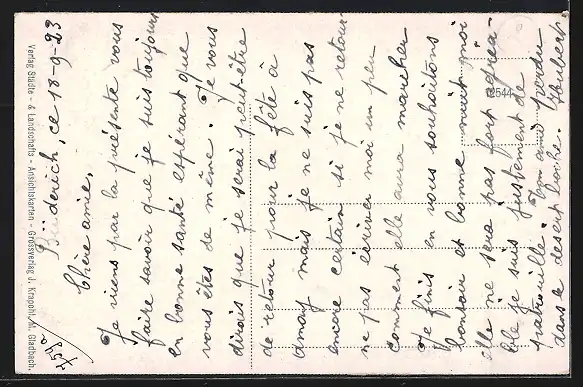 Büderich, ce 18-9-23
Chère amie,
Je viens par la présente vous
faire savoir que je suis toujours
en bonne santé espérant que
vous êtes de même. Je vous
dirais que je serai peut-être
de retour pour la fête à
mais je ne suis pas
encore certain si je ne retour
ne pas écriver moi un peu
comment elle aura marcher
Je finis en vous souhaitons
bonsoir et bonne nuit moi
elle ne sera pas fort agréa-
ble je suis justement de
patrouille. Ton ami perdu
dans le desert boche.
Verlag Städte- & Landschafts-Ansichtskarten - Grossverlag J. Krapohl, M. Gladbach.
12544